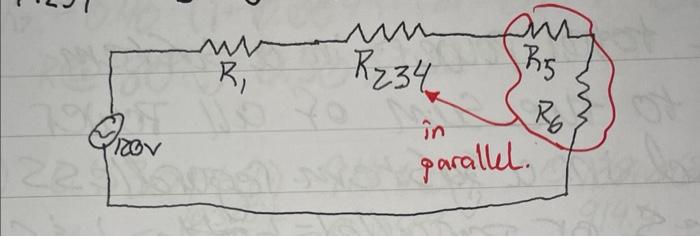 R1
R234
R5
R6
120V
in
parallel.